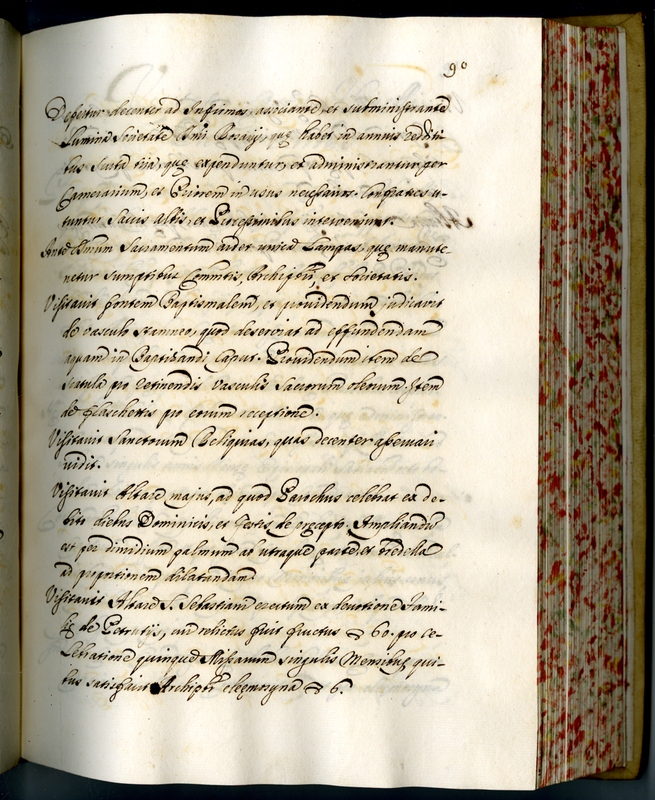 90
Defertur decenter ad Infirmos, associante, et subministrante
Lumina Societate SSmi Rosarij, quæ habet in annuis redditi-
bus scuta tria, quæ expenduntur, et administrantur per
Camerarium, et Priorem in usus necessarios. Confratres u-
tuntur Saccis Albis, et Processionibus interveniunt.
Ante SSmum Sacramentum ardet unica Lampas, quæ manute-
netur sumptibus Commtis, Archiptri, et Societatis.
Visitavit fontem Baptismalem, et providendum judicavit
de vasculo stamneo, quod deserviat ad effundendam
aquam in Baptizandi Caput. Providendum item de
scatula pro retinendis Vasculis Sacrorum oleorum. Item
de flaschettis pro eorum receptione.
Visitavit Sanctorum Reliquias, quas decenter asservari
vidit.
Visitavit Altare majus, ad quod Parochus celebrat ex de-
bito diebus Dominicis, et Festis de præcepto. Ampliandum
est per dimidium palmum ab utraque parte, et bredella
ad proportionem dilatandam
Visitavit Altare S. Sebastiani erectum ex devotione Fami-
liæ de Petrutijs, cui relictus fuit fructus 60. pro ce-
lebratione quinque Missarum singulis Mensibus, qui-
bus satisfacit Archipbr eleemosyna 6.